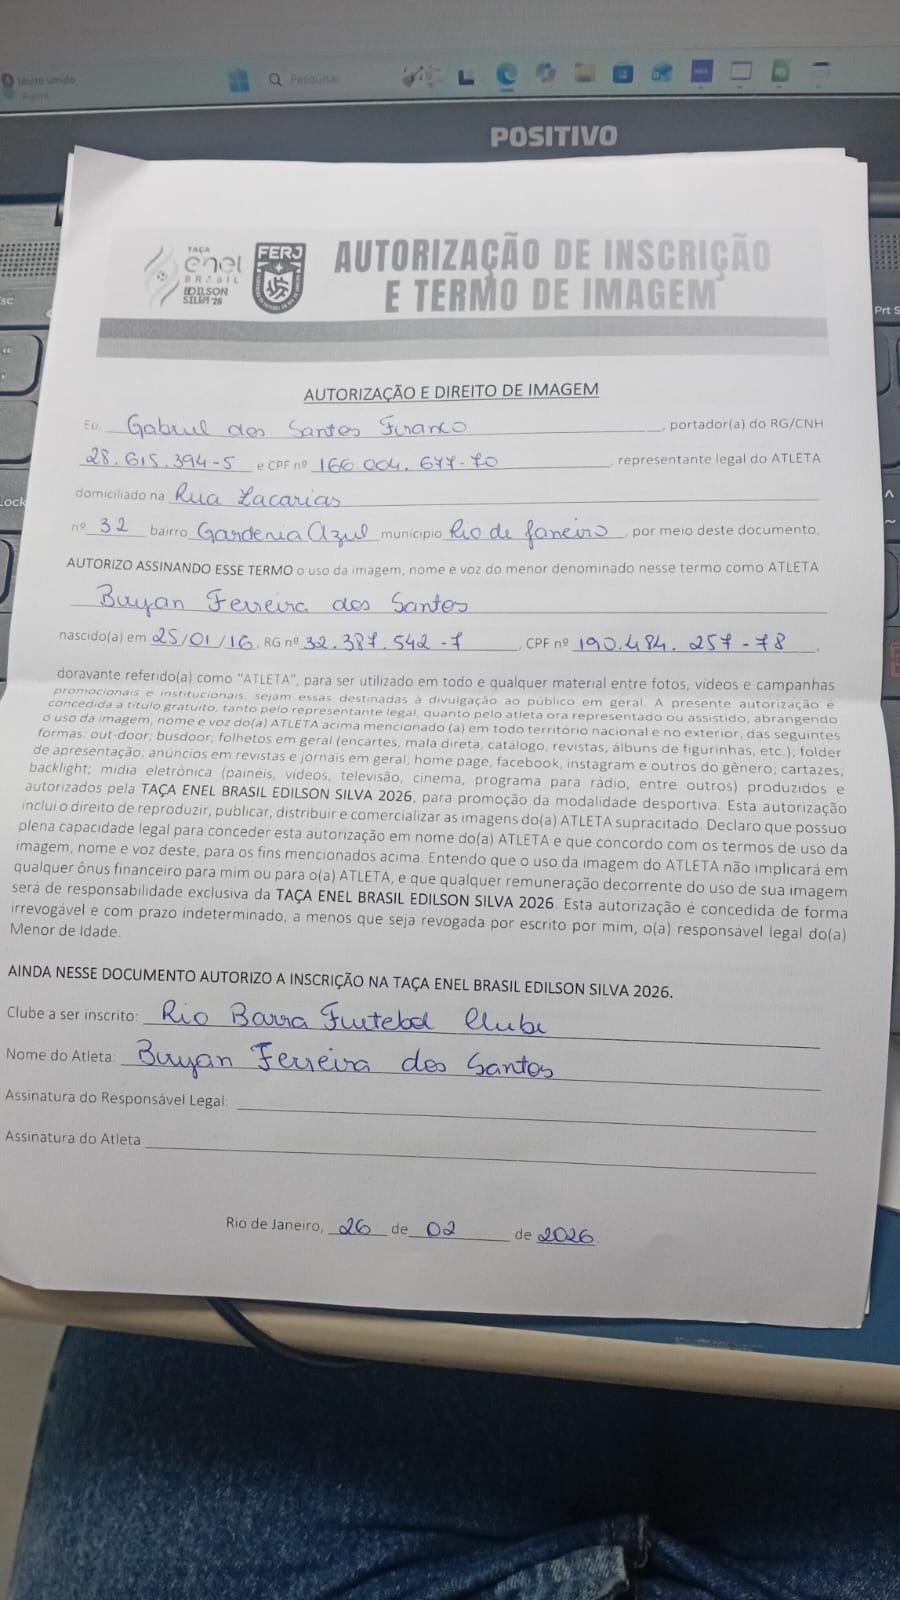 Muito úmido
Agora
Pesquisar
POSITIVO
Prt S
TAÇA
enel
BRASIL
EDILSON
SILVA '26
FERJ
AUTORIZAÇÃO DE INSCRIÇÃO
E TERMO DE IMAGEM
AUTORIZAÇÃO E DIREITO DE IMAGEM
Eu, Gabriel dos Santos Franco, portador(a) do RG/CNH
28.615.394-5 e CPF nº 166.004.677-70, representante legal do ATLETA
domiciliado na Rua Zacarias
nº 32 bairro Gardenia Azul município Rio de Janeiro, por meio deste documento,
AUTORIZO ASSINANDO ESSE TERMO o uso da imagem, nome e voz do menor denominado nesse termo como ATLETA
Bryan Ferreira dos Santos
nascido(a) em 25/01/16, RG nº 32.387.542-7, CPF nº 190.484.257-78,
doravante referido(a) como "ATLETA", para ser utilizado em todo e qualquer material entre fotos, vídeos e campanhas
promocionais e institucionais, sejam essas destinadas à divulgação ao público em geral. A presente autorização é
concedida a título gratuito, tanto pelo representante legal, quanto pelo atleta ora representado ou assistido, abrangendo
o uso da imagem, nome e voz do(a) ATLETA acima mencionado (a) em todo território nacional e no exterior, das seguintes
formas: out-door; busdoor; folhetos em geral (encartes, mala direta, catálogo, revistas, álbuns de figurinhas, etc.); folder
de apresentação; anúncios em revistas e jornais em geral; home page, facebook, instagram e outros do gênero; cartazes;
backlight; mídia eletrônica (painéis, vídeos, televisão, cinema, programa para rádio, entre outros) produzidos e
autorizados pela TAÇA ENEL BRASIL EDILSON SILVA 2026, para promoção da modalidade desportiva. Esta autorização
inclui o direito de reproduzir, publicar, distribuir e comercializar as imagens do(a) ATLETA supracitado. Declaro que possuo
plena capacidade legal para conceder esta autorização em nome do(a) ATLETA e que concordo com os termos de uso da
imagem, nome e voz deste, para os fins mencionados acima. Entendo que o uso da imagem do ATLETA não implicará em
qualquer ônus financeiro para mim ou para o(a) ATLETA, e que qualquer remuneração decorrente do uso de sua imagem
será de responsabilidade exclusiva da TAÇA ENEL BRASIL EDILSON SILVA 2026. Esta autorização é concedida de forma
irrevogável e com prazo indeterminado, a menos que seja revogada por escrito por mim, o(a) responsável legal do(a)
Menor de Idade.
AINDA NESSE DOCUMENTO AUTORIZO A INSCRIÇÃO NA TAÇA ENEL BRASIL EDILSON SILVA 2026.
Clube a ser inscrito: Rio Barra Futebol Clube
Nome do Atleta: Bryan Ferreira dos Santos
Assinatura do Responsável Legal:
Assinatura do Atleta
Rio de Janeiro, 26 de 02 de 2026.